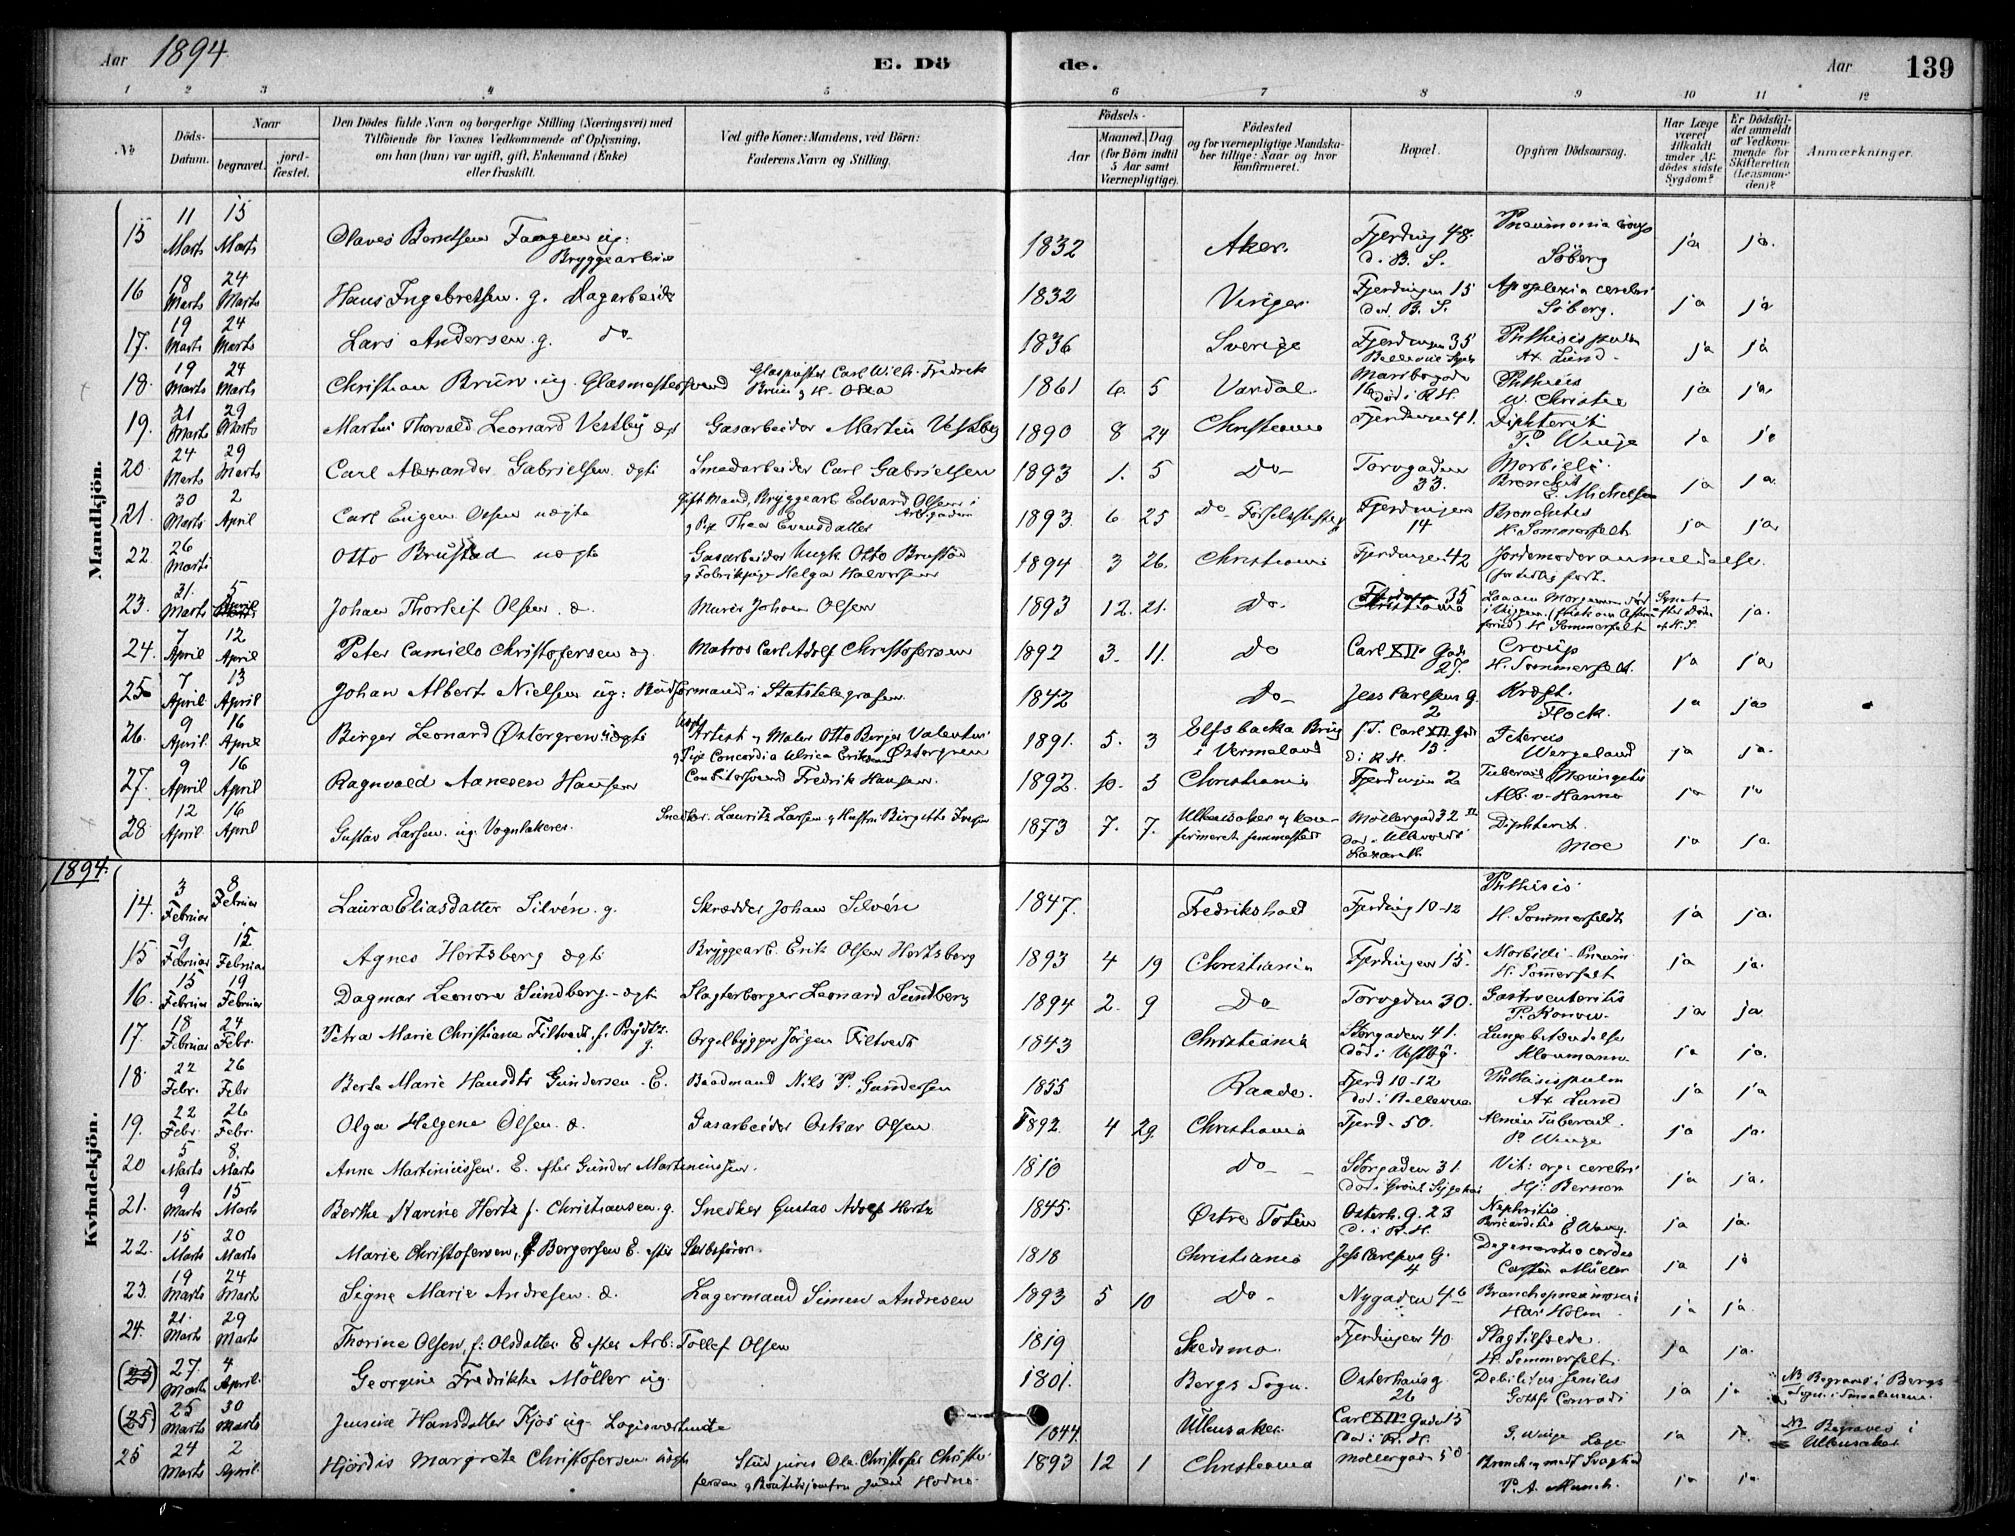 Aar 1894. E. Dö de. Aar 139
1 2 3 4 5 6 7 8 9 10 11 12
№ Döds-Datum. Naar begravet. jordfæstet. Den Dödes fulde Navn og borgerlige Stilling (Næringsvei) med Tilföiende for Voxnes Vedkommende af Oplysning, om han (hun) var ugift, gift, Enkemand (Enke) eller fraskilt. Ved gifte Koner: Mandens, ved Börn: Faderens Navn og Stilling. Födsels- Aar Maaned. Dag (for Börn indtil 5 Aar samt Værnepligtige). Födested og for værnepligtige Mandskaber tillige: Naar og hvor konfirmeret. Bopæl. Opgiven Dödsaarsag. Har Læge været tilkaldt under Afdödes sidste Sygdom? Er Dödsfaldet anmeldt af Vedkommende for Skifteretten (Lensmanden)? Anmærkninger.
Mandkjön.
15 11 Marts 15 Marts Olaves Berntsen Faagen ug: Bryggearbeider 1832 Aker. Fjerding 48. d. B. S. Pneumonia Söberg ja ja.
16 18 Marts 24 Marts Hans Ingebretsen. g. Dagarbeider 1832 Fjerdingen 15 död. B. S. Apoplexia cerebri Söberg. ja ja
17. 19 Marts 24 Marts Lars Andersen. g. do 1836 Sverige Fjerdingen 35 Bellevue Phthisis pulm Ax. Lund. ja ja
18. 19 Marts 24 Marts Christian Brun. ug. Glasmestersvend Carl Wilh. Fredrik Brun 1861 6. 5 Vardal. Maribogade 16 död i R H. Phthisis W. Christie ja ja.
19. 21 Marts 29 Marts Martin Thorvald Leonard Vestby ægt Gasarbeider Martin Vestby 1890 8 24 Christiania Fjerdingen 41. Diphterit P. Winge ja ja
20. 24 Marts 29 Marts Carl Alexander Gabrielsen ægte Smedarbeider Carl Gabrielsen 1893 1. 5 Do Torvgaden 33. Morbilli. Bronchit E. Michelsen ja ja.
21. 30 Marts 2 April Carl Eugen Olsen uægte Gift Mand, Bryggearb. Edvard Olsen i Arbigaden g Pige Thea Evensdatter 1893. 6. 25 Do Födselsstiftelse Fjerdingen 14 Bronchites H. Sommerfelt ja ja
22. 26 Marts Otto Brustad uægte Gasarbeider Ungk Otto Brustad g Fabrikpige Helga Halvorsen 1894 3 26. Christiania Fjerdingen 42 Jordemoderanmeldelse
23. 31. Marts 5 April Johan Thorleif Olsen. æ. Murer Johan Olsen 1893 12. 21. Do. 35 H Sommerfelt ja.
24. 7 April 12 April Peter Camillo Christofersen æg. Matros Carl Adolf Christofersen 1892 3. 11. Do Carl XII Gade 27. Croup H. Sommerfelt. ja ja
25 7 April 13 April Johan Albert Nielsen ug: Budformand i Statstelegrafen. 1842 Do Jess Carlsens g. 2 Kræft. Flock. ja ja
26. 9 April. 16 April Birger Leonard Östergren uægte Artist g Maler Otto Birger Valentin Östergren g Pige Concordia Ulrica Eriksen 1891. 5. 3 Elfsbacka Brug i Vermeland Carl XII Gade 15. d i R. H. Icterus Wergeland ja ja.
27. 9 April 16 April Ragnvald Aanesen Hansen Conditorsvend Fredrik Hansen. 1892. 10. 3 Christiania Fjerdingen 2 Tubercul Meningitis Alb. v. Hanno ja ja
28 12 April 16 April Gustav Larsen. ug. Vognlakerer. Snedker. Lauritz Larsen g Hustru Birgitte Iversen 1873 7. 7. Ullensaker g konfirmeret sammesteds Möllergad 32 död Ullevold Lazareth Diphterit. Moe ja ja.
1894.
Kvindekjön.
14. 3 Februar 8 Februar Laura Eliasdatter Silvén. g. Skrædder Johan Silvén 1847. Fredrikshald Fjerding 10-12 Phthisis. H. Sommerfeldt ja ja.
15 9 Februar 15 Februar Agnes Hertsberg ægte Bryggearb. Erik Olsen Hertsberg 1893 4 19 Christiania Fjerdingen 15. Morbilli. Pneum H. Sommerfelt ja ja.
16. 15 Februar 19 Februar Dagmar Leonore Sundberg ægte Slagterborger Leonard Sundberg 1894 2. 9 Do Torvgden 30. Gastroenteritis P. Ronow. ja ja.
17. 18 Februar 24 Febr. Petra Marie Christiane Filtvedt, f. Prydtz. g. Orgelbygger Jörgen Filtvedt 1843 Christiania Storgaden 41. död i Vestby. Lungebetændelse Kloumann ja ja.
18. 22 Febr. 26 Febr Berte Marie Hansdtr Gundersen. E. Baadmand Nils P. Gundersen 1855 Raade. Fjerd 10-12 död i Bellevue Phthisis pulm Ax Lund ja ja
19. 22 Febr. 26 Febr. Olga Helgene Olsen. æ. Gasarbeider Oskar Olsen 1892. 4 29. Christiania Fjerd. 50. Almin Tubercul. P. Winge ja ja.
20 5 Marts 8. Marts Anne Martiniussen. E. efter Gunder Martiniussen. 1810 Do Storgaden 31. död i Grönl. Sygehus Vit: org: cerebri Hj: Berner ja ja.
21. 9 Marts 15 Marts Berthe Karine Hertz f. Christiansen. g. Snedker Gustav Adolf Hertz 1845. Östre Toten Osterh. g. 23 d. i R. H. Nephritis. Pericarditis E Wang. ja ja.
22. 15 Marts 20 Marts Marie Christofersen, f Bergersen E. efter Skibsförer. 1818 Christiania Jess Carlsens G. 4 Degeneratio cordis Carsten Müller ja ja
23. 19 Marts 24 Marts Signe Marie Andresen. æ. Lagermand Simen Andresen 1893 5 10 Do Nygaden 46 Bronchopneumoni Holm ja ja.
24. 21. Marts 29 Marts Thorine Olsen, f: Olsdatter E efter Arb: Tollef Olsen 1819 Skedsmo. Fjerdingen 40. Slagtilfælde. H. Sommerfelt. ja ja.
(25) 27 Marts 4 April. Georgine Fredrikke Möller ug. 1801. Bergs Sogn. Osterhausg 26 Debilitas senilis Gotth Conradi ja ja NB Begraves i Bergs Sogn i Smaalenene.
(25) 25 Marts 30 Marts Jensine Hansdatter Kjos ug. Logisværtinde 1844. Ullensaker. Carl XII Gade 15 död i R. H. G. Winge Læge ja ja. NB Begraves i Ullensaker
25 24 Marts 2 April. Hjördis Margrete Christofersen uægte Stud juris Ole Christofer Christofersen g Butiksjomfru Julie Hodne 1893 12 1 Christiania Möllergade 50 Bronch g medf Svaghed P. A. Munch. ja ja.